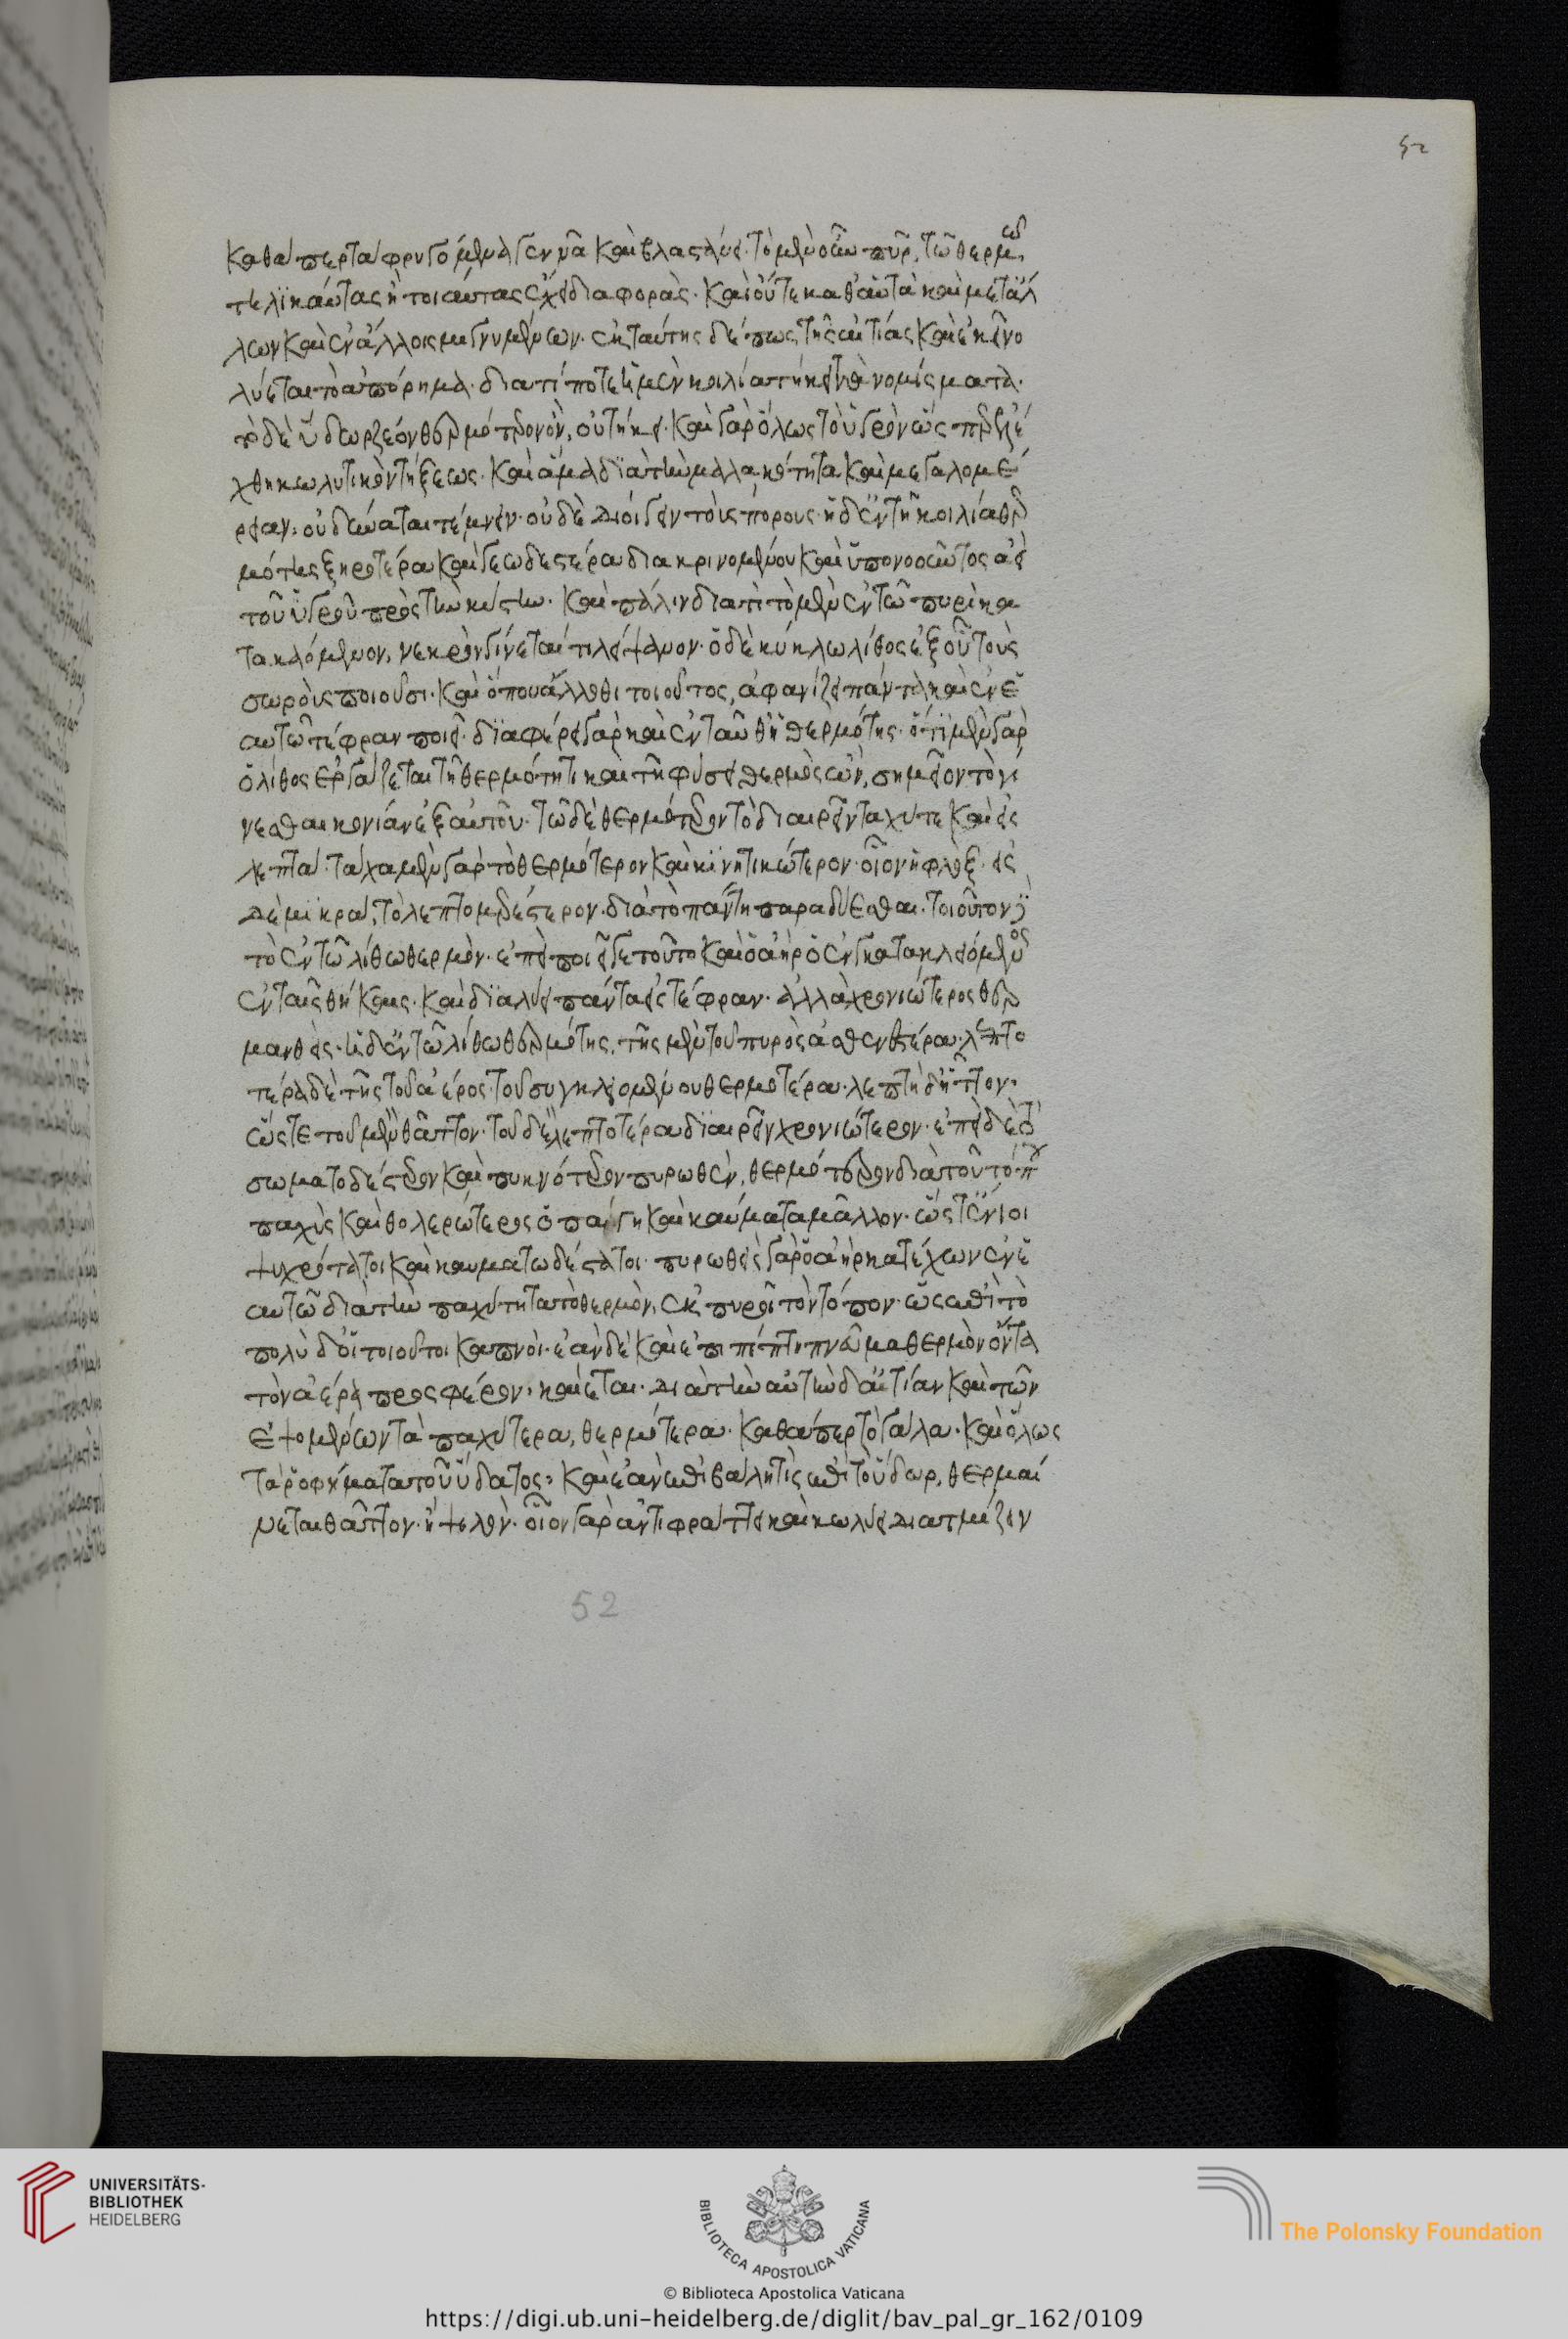 καθάπερ τὰ φρυγόμενα γεννᾶ καὶ βλαστάνει. τὸ μὲν οὖν πῦρ, τῶ θερμῶ
τηλικαύτας ἢ τοιαύτας ἔχει διαφορὰς. καὶ οὔτε καθ' αὑτὰ καὶ μετ' ἄλ
λων καὶ ἐν ἄλλοις μιγνυμένων. ἐκ ταύτης δέ πως τῆς αἰτίας καὶ ἐκεῖνο
λύεται τὸ ἀπόρημα. διατί ποτε ἡ μὲν κοιλία τήκει τὰ νομίσματα.
τὸ δὲ ὕδωρ ζέον θερμότερον ὂν, οὐ τήκει. καὶ γὰρ ὅλως τὸ ὑγρὸν ὥσπερ ἐλέ
χθη κωλυτικὸν τήξεως. καὶ ἅμα διὰ τὴν μαλακότητα καὶ μεγαλομέ
ρειαν. οὐ δύναται τέμνειν. οὐδὲ διοίγειν τοὺς πόρους. ἡ δ' ἐν τῆ κοιλία θερ
μότης ξηροτέρα καὶ γεωδεστέρα διακρινομένου καὶ ὑπονοοῦντος ἀεὶ
τοῦ ὑγροῦ πρὸς τὴν κύστιν. καὶ πάλιν διατί τὸ μὲν ἐν τῶ πυρὶ κα
τακαόμενον, νεκρὸν γίνεταί τι λείψανον. ὁ δὲ κύκλω λίθος ἐξ οὗ τοὺς
σωροὺς ποιοῦσι. καὶ ὅπου ἄλλοθι τοιοῦτος, ἀφανίζει πάντα καὶ ἐν ἑ
αυτῶ τέφραν ποιεῖ. διαφέρει γὰρ καὶ ἐνταῦθ' ἡ θερμότης. ὅτι μὲν γὰρ
ὁ λίθος ἐργάζεται τῆ θερμότητι καὶ τῆ φύσει θερμὸς ὢν, σημεῖον τὸ γί
νεσθαι κονίαν ἐξ αὐτοῦ. τῶ δὲ θερμότερον τὸ διαιρεῖν ταχύ τε καὶ εἰς
λεπτά. τάχα μὲν γὰρ τὸ θερμότερον καὶ κινητικώτερον. οἷον ἡ φλὸξ. εἰς
δὲ μικρά, τὸ λεπτομερέστερον. διὰ τὸ πάντη παραδύεσθαι. τοιοῦτον δὲ
τὸ ἐν τῶ λίθω θερμὸν. ἐπεὶ ποιεῖ γε τοῦτο καὶ ὁ ἀὴρ ὁ ἐγκατακλειόμενος
ἐν ταῖς θήκαις. καὶ διαλύει πάντα εἰς τέφραν. ἀλλὰ χρονιώτερος θερ
μανθείς. ἡ δ' ἐν τῶ λίθω θερμότης, τῆς μὲν τοῦ πυρὸς ἀσθενεστέρα. λεπτο
τέρα δὲ τῆς τοῦ ἀέρος τοῦ συγκλειομένου θερμοτέρα. λεπτὴ δ' ἧττον.
ὥστε τοῦ μὲν θᾶττον. τοῦ δὲ λεπτοτέρα διαιρεῖν χρονιώτερον. ἐπεὶ δὲ τὸ
σωματοδέστερον καὶ πυκνότερον πυρωθὲν, θερμότερον διὰ τοῦτο
παχὺς καὶ θολερώτερος ὁ καὶ καύματα μᾶλλον. ὥστ' ἔνιοι
ψυχρότατοι καὶ καυματωδέστατοι. πυρωθεὶς γὰρ ὁ ἀὴρ κατέχων ἐν ἑ
αυτῶ διὰ τὴν παχύτητα τὸ θερμὸν, ἐκπυροῖ τὸν τόπον. ὡς ἐπὶ τὸ
πολὺ δ' οἱ τοιοῦτοι καπνοὶ. ἐὰν δὲ καὶ ἐπιπίπτη πνεῦμα θερμὸν ὄντα
τὸν ἀέρα προσφέρον, καίεται. διὰ τὴν αὐτὴν δ' αἰτίαν καὶ τῶν
ἑψομένων τὰ παχύτερα, θερμότερα. καθάπερ τὸ γάλα. καὶ ὅλως
τὰ ῥοφήματα τοῦ ὕδατος. καὶ ἐὰν ἐπιβάλη τις ἐπὶ τὸ ὕδωρ, θερμαί
νεται θᾶττον. ἢ ψιλὸν. οἷον γὰρ ἀντιφράττει καὶ κωλύει διατμίζειν
52
52
UNIVERSITÄTS-
BIBLIOTHEK
HEIDELBERG
BIBLIOTECA APOSTOLICA VATICANA
The Polonsky Foundation
© Biblioteca Apostolica Vaticana
https://digi.ub.uni-heidelberg.de/diglit/bav_pal_gr_162/0109